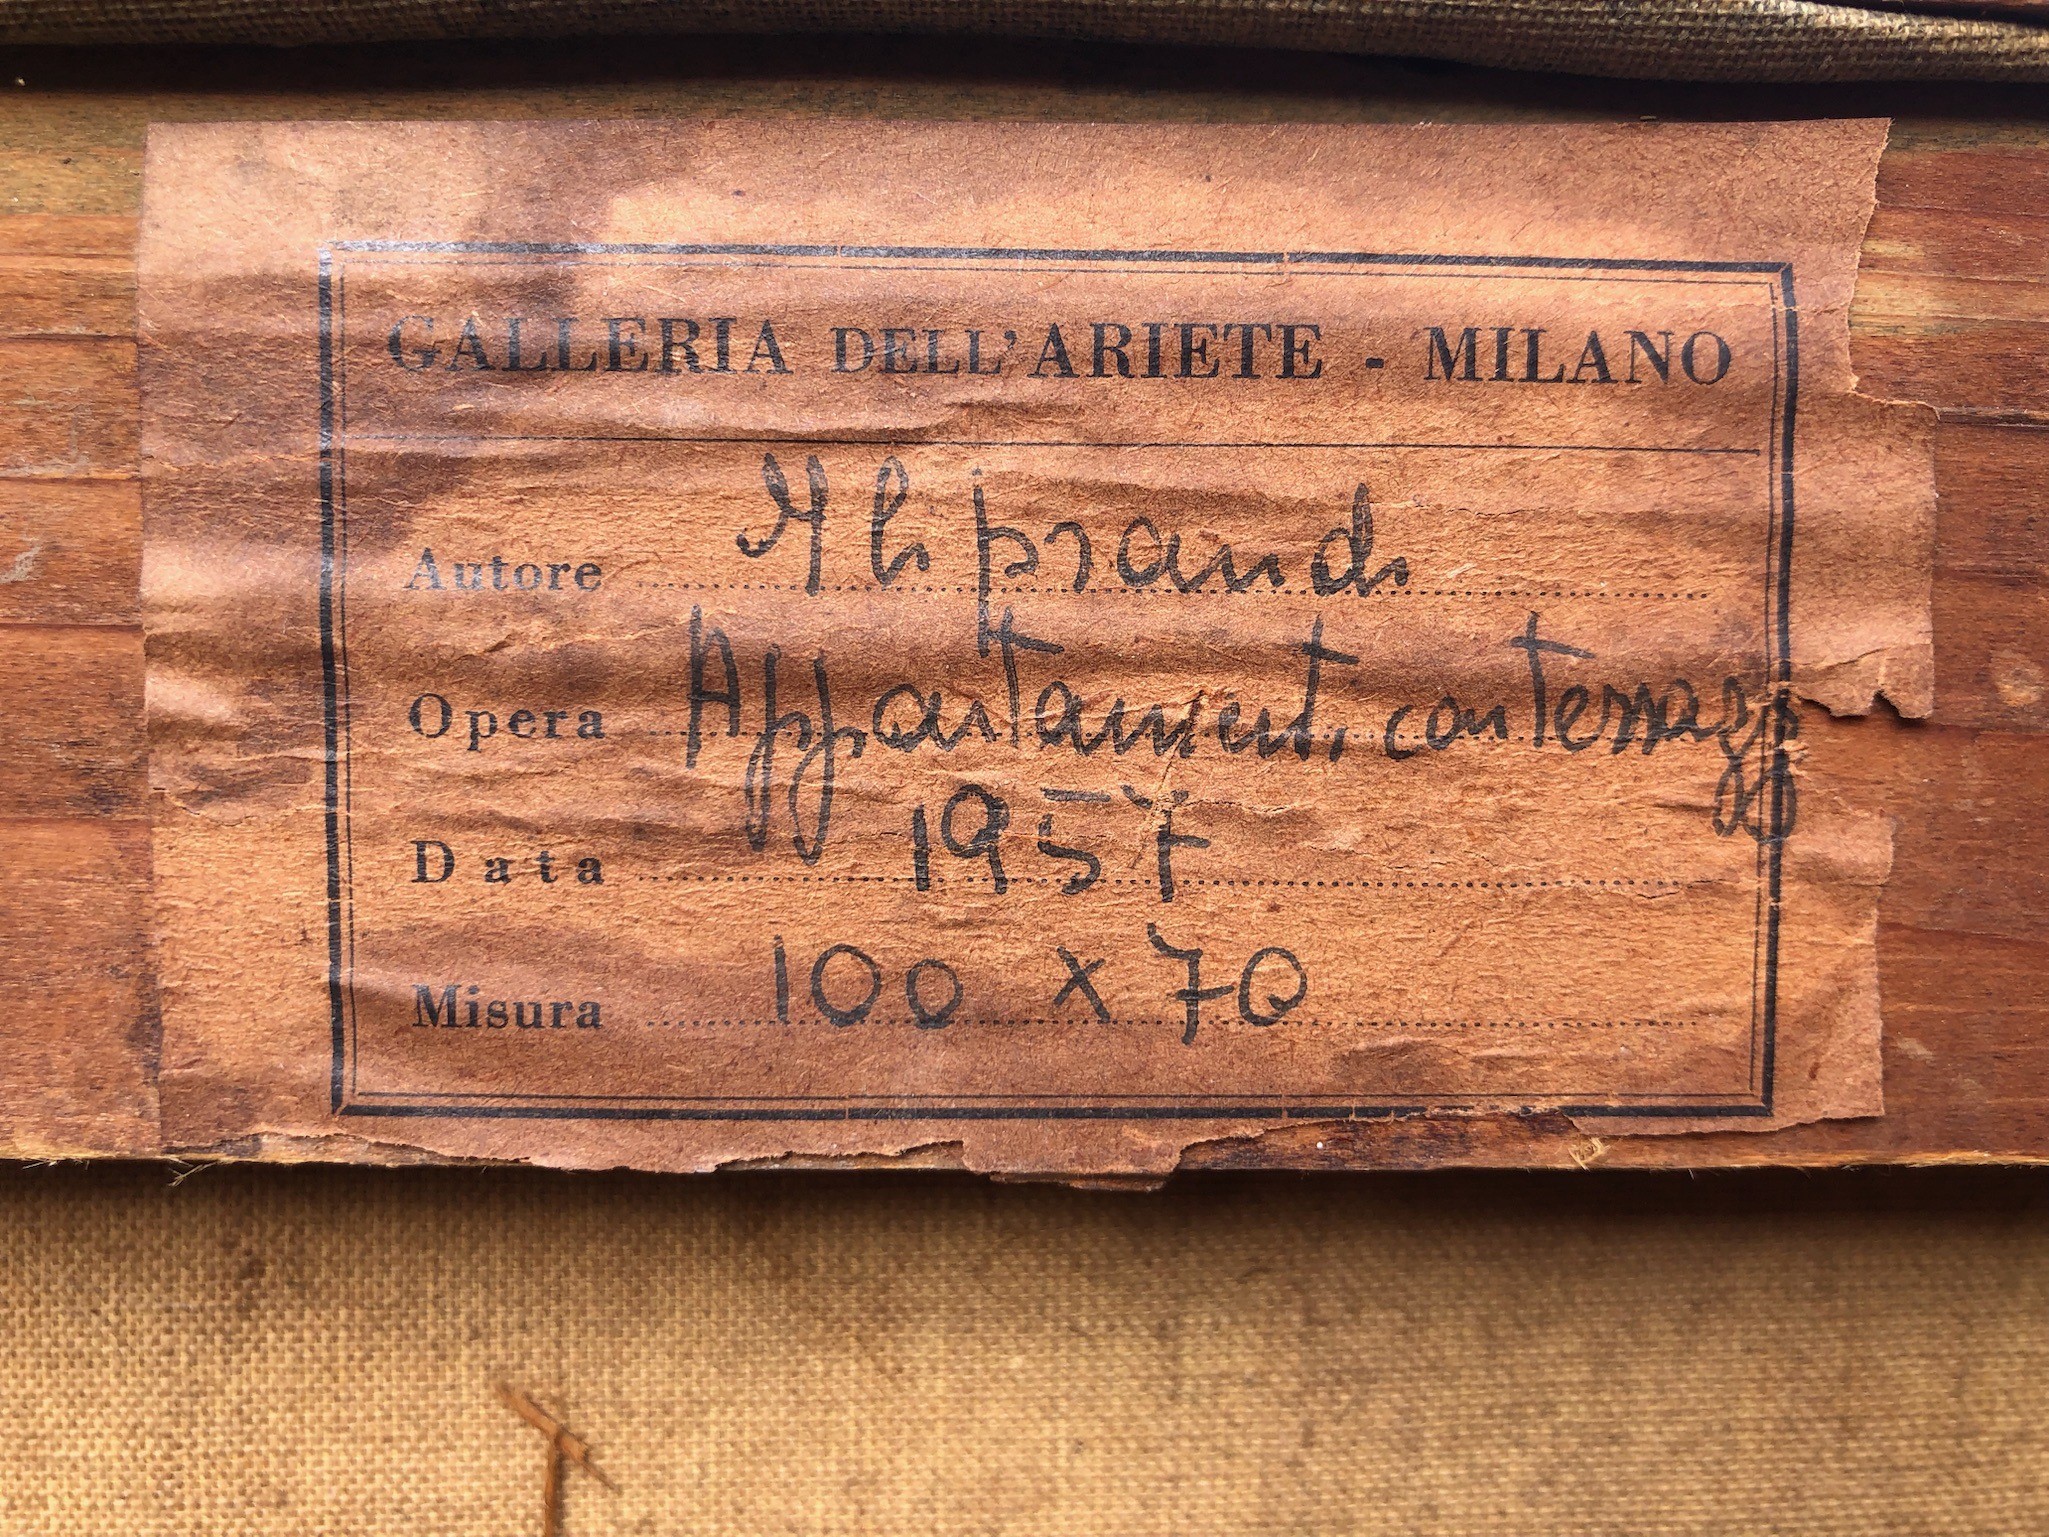 GALLERIA DELL'ARIETE - MILANO
Autore Aliprandi
Opera Appartamenti con terrazzi
Data 1957
Misura 100 x 70